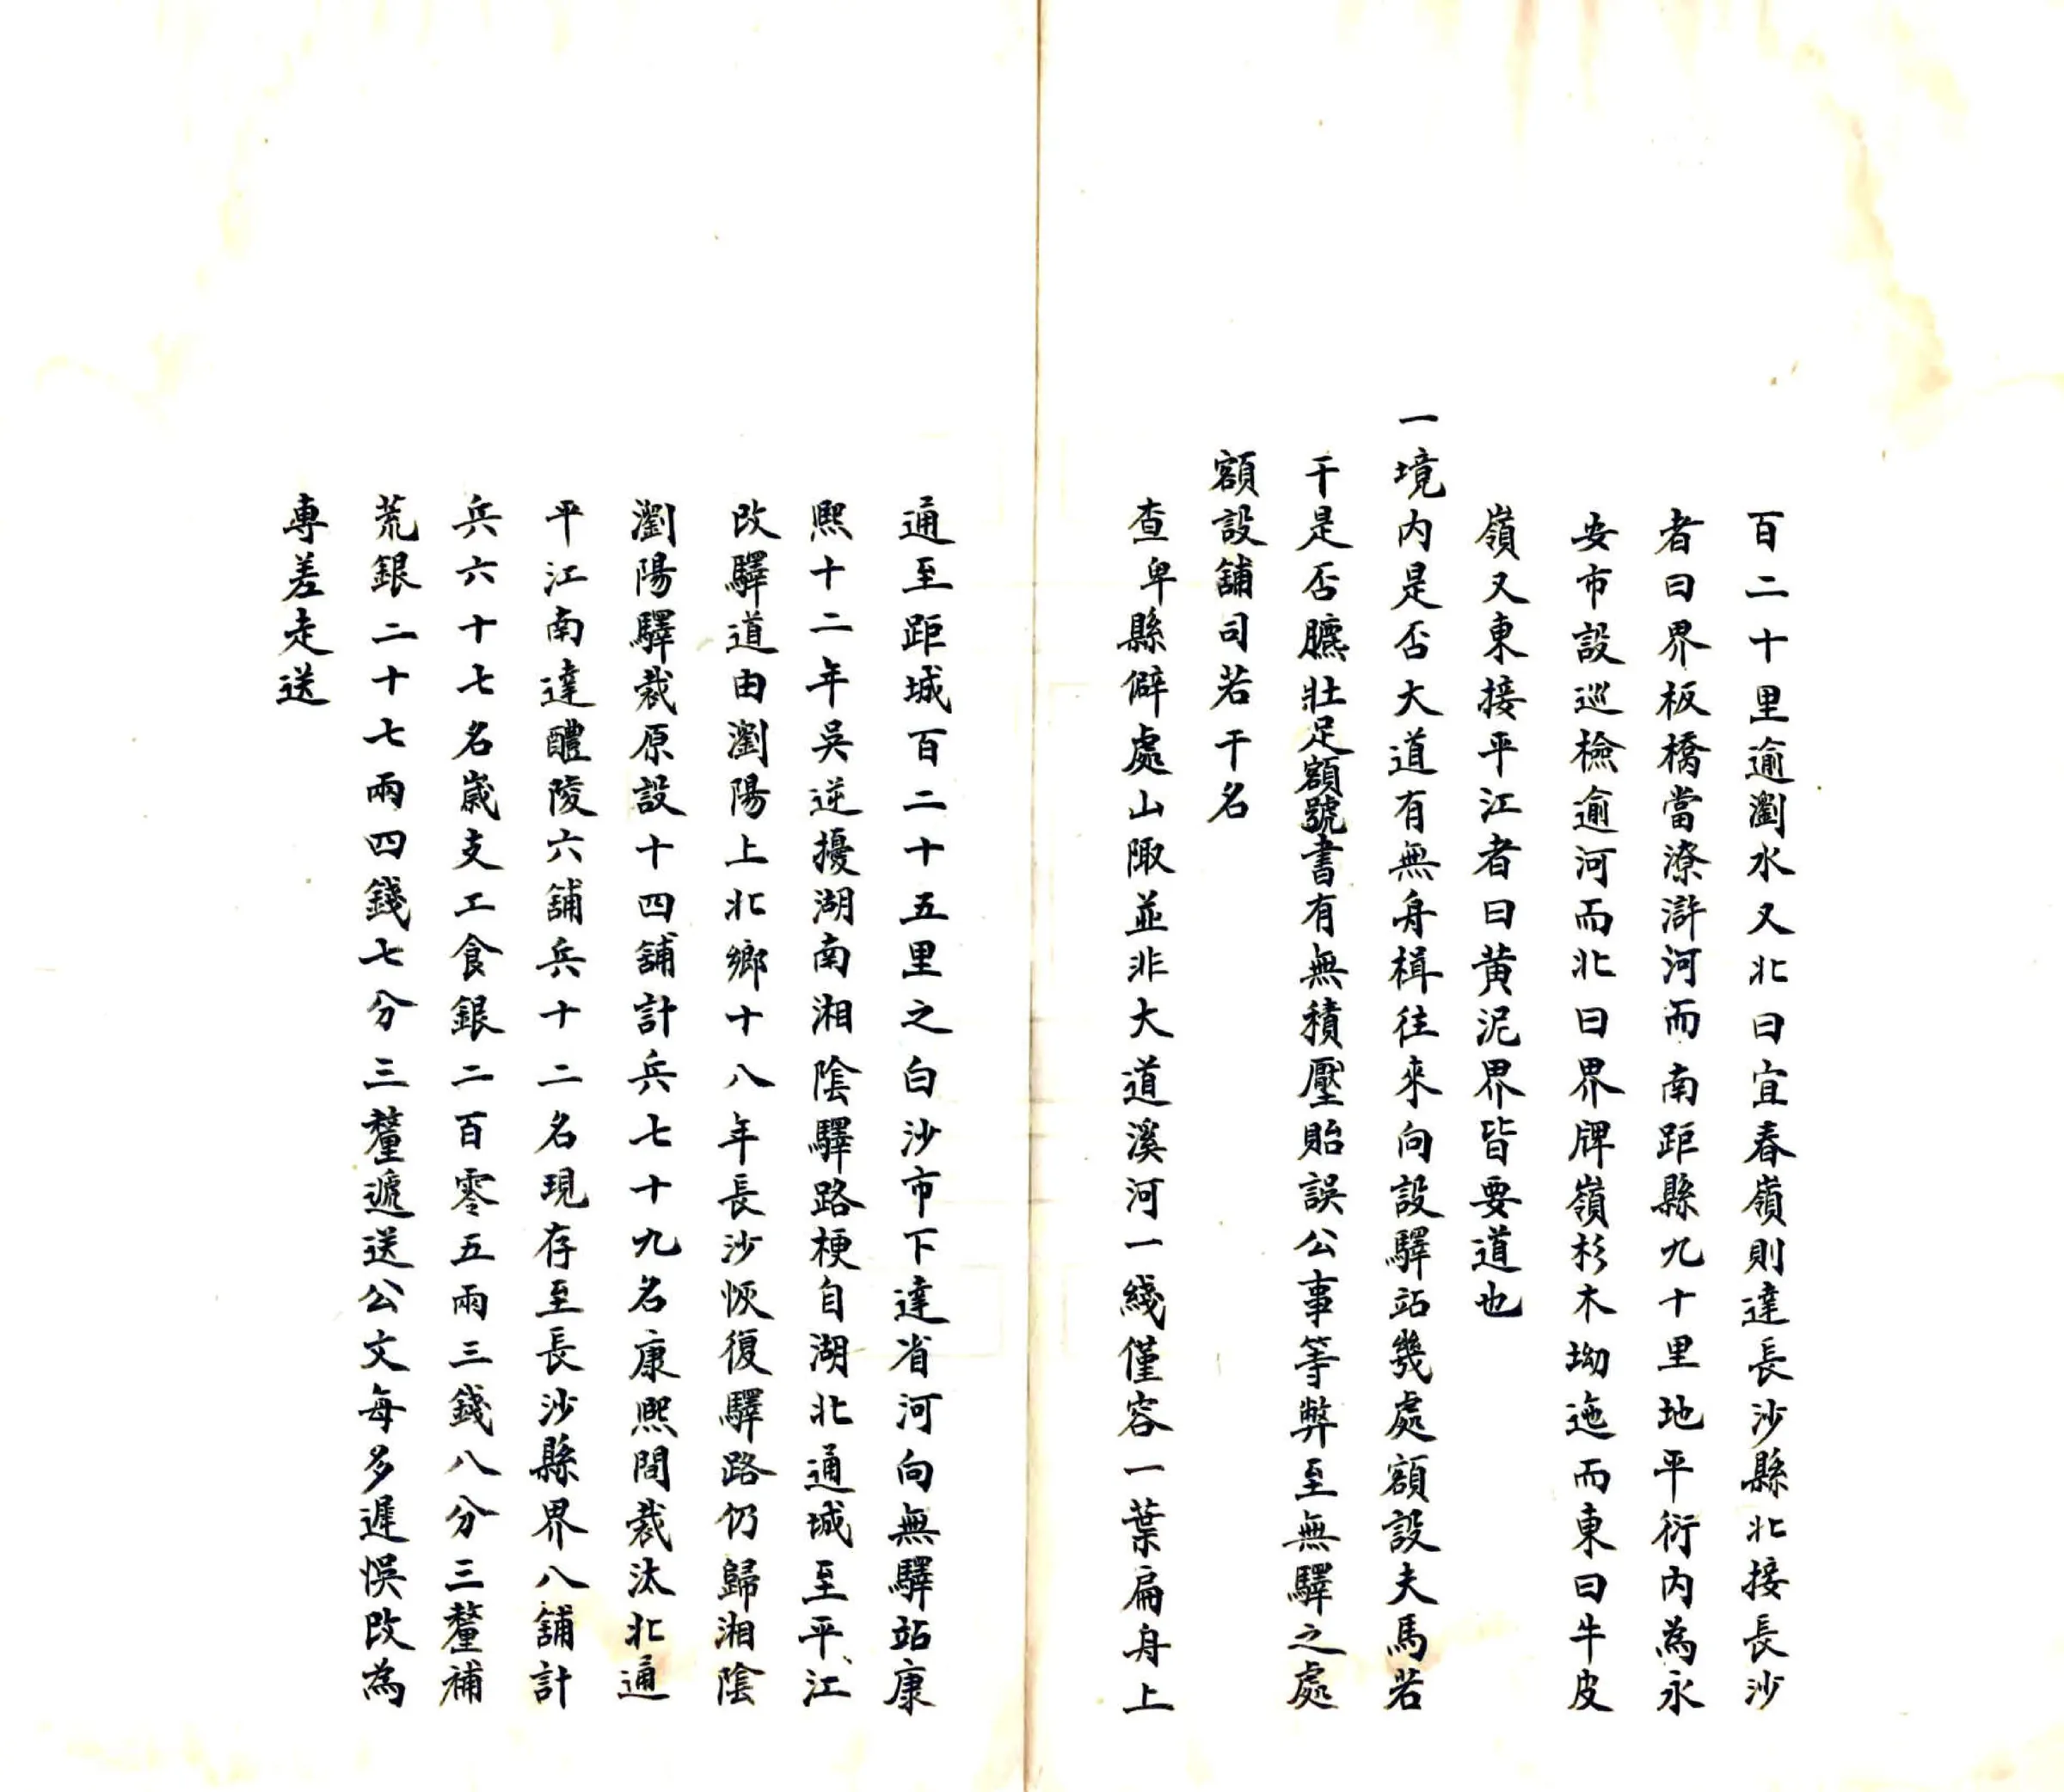 百二十里逾瀏水又北曰宜春嶺則達長沙縣北接長沙
者曰界板橋當潦滸河而南距縣九十里地平衍内為永
安市設巡檢逾河而北曰界牌嶺杉木坳迤而東曰牛皮
嶺又東接平江者曰黄泥界皆要道也
一境内是否大道有無舟楫往來向設驛站幾處額設夫馬若
干是否臕壯足額號書有無積壓貽誤公事等弊至無驛之處
額設舖司若干名
查卑縣僻處山陬並非大道溪河一綫僅容一葉扁舟上
通至距城百二十五里之白沙市下達省河向無驛站康
熙十二年吳逆擾湖南湘陰驛路梗自湖北通城至平江
改驛道由瀏陽上北鄉十八年長沙恢復驛路仍歸湘陰
瀏陽驛裁原設十四舖計兵七十九名康熙間裁汰北通
平江南達醴陵六舖兵十二名現存至長沙縣界八舖計
兵六十七名歲支工食銀二百零五兩三錢八分三釐補
荒銀二十七兩四錢七分三釐遞送公文每多遲悞改為
專差走送